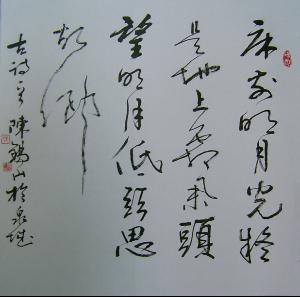 床前明月光疑
是地上霜舉頭
望明月低頭思
故鄉
古詩 陳錫山於泉城